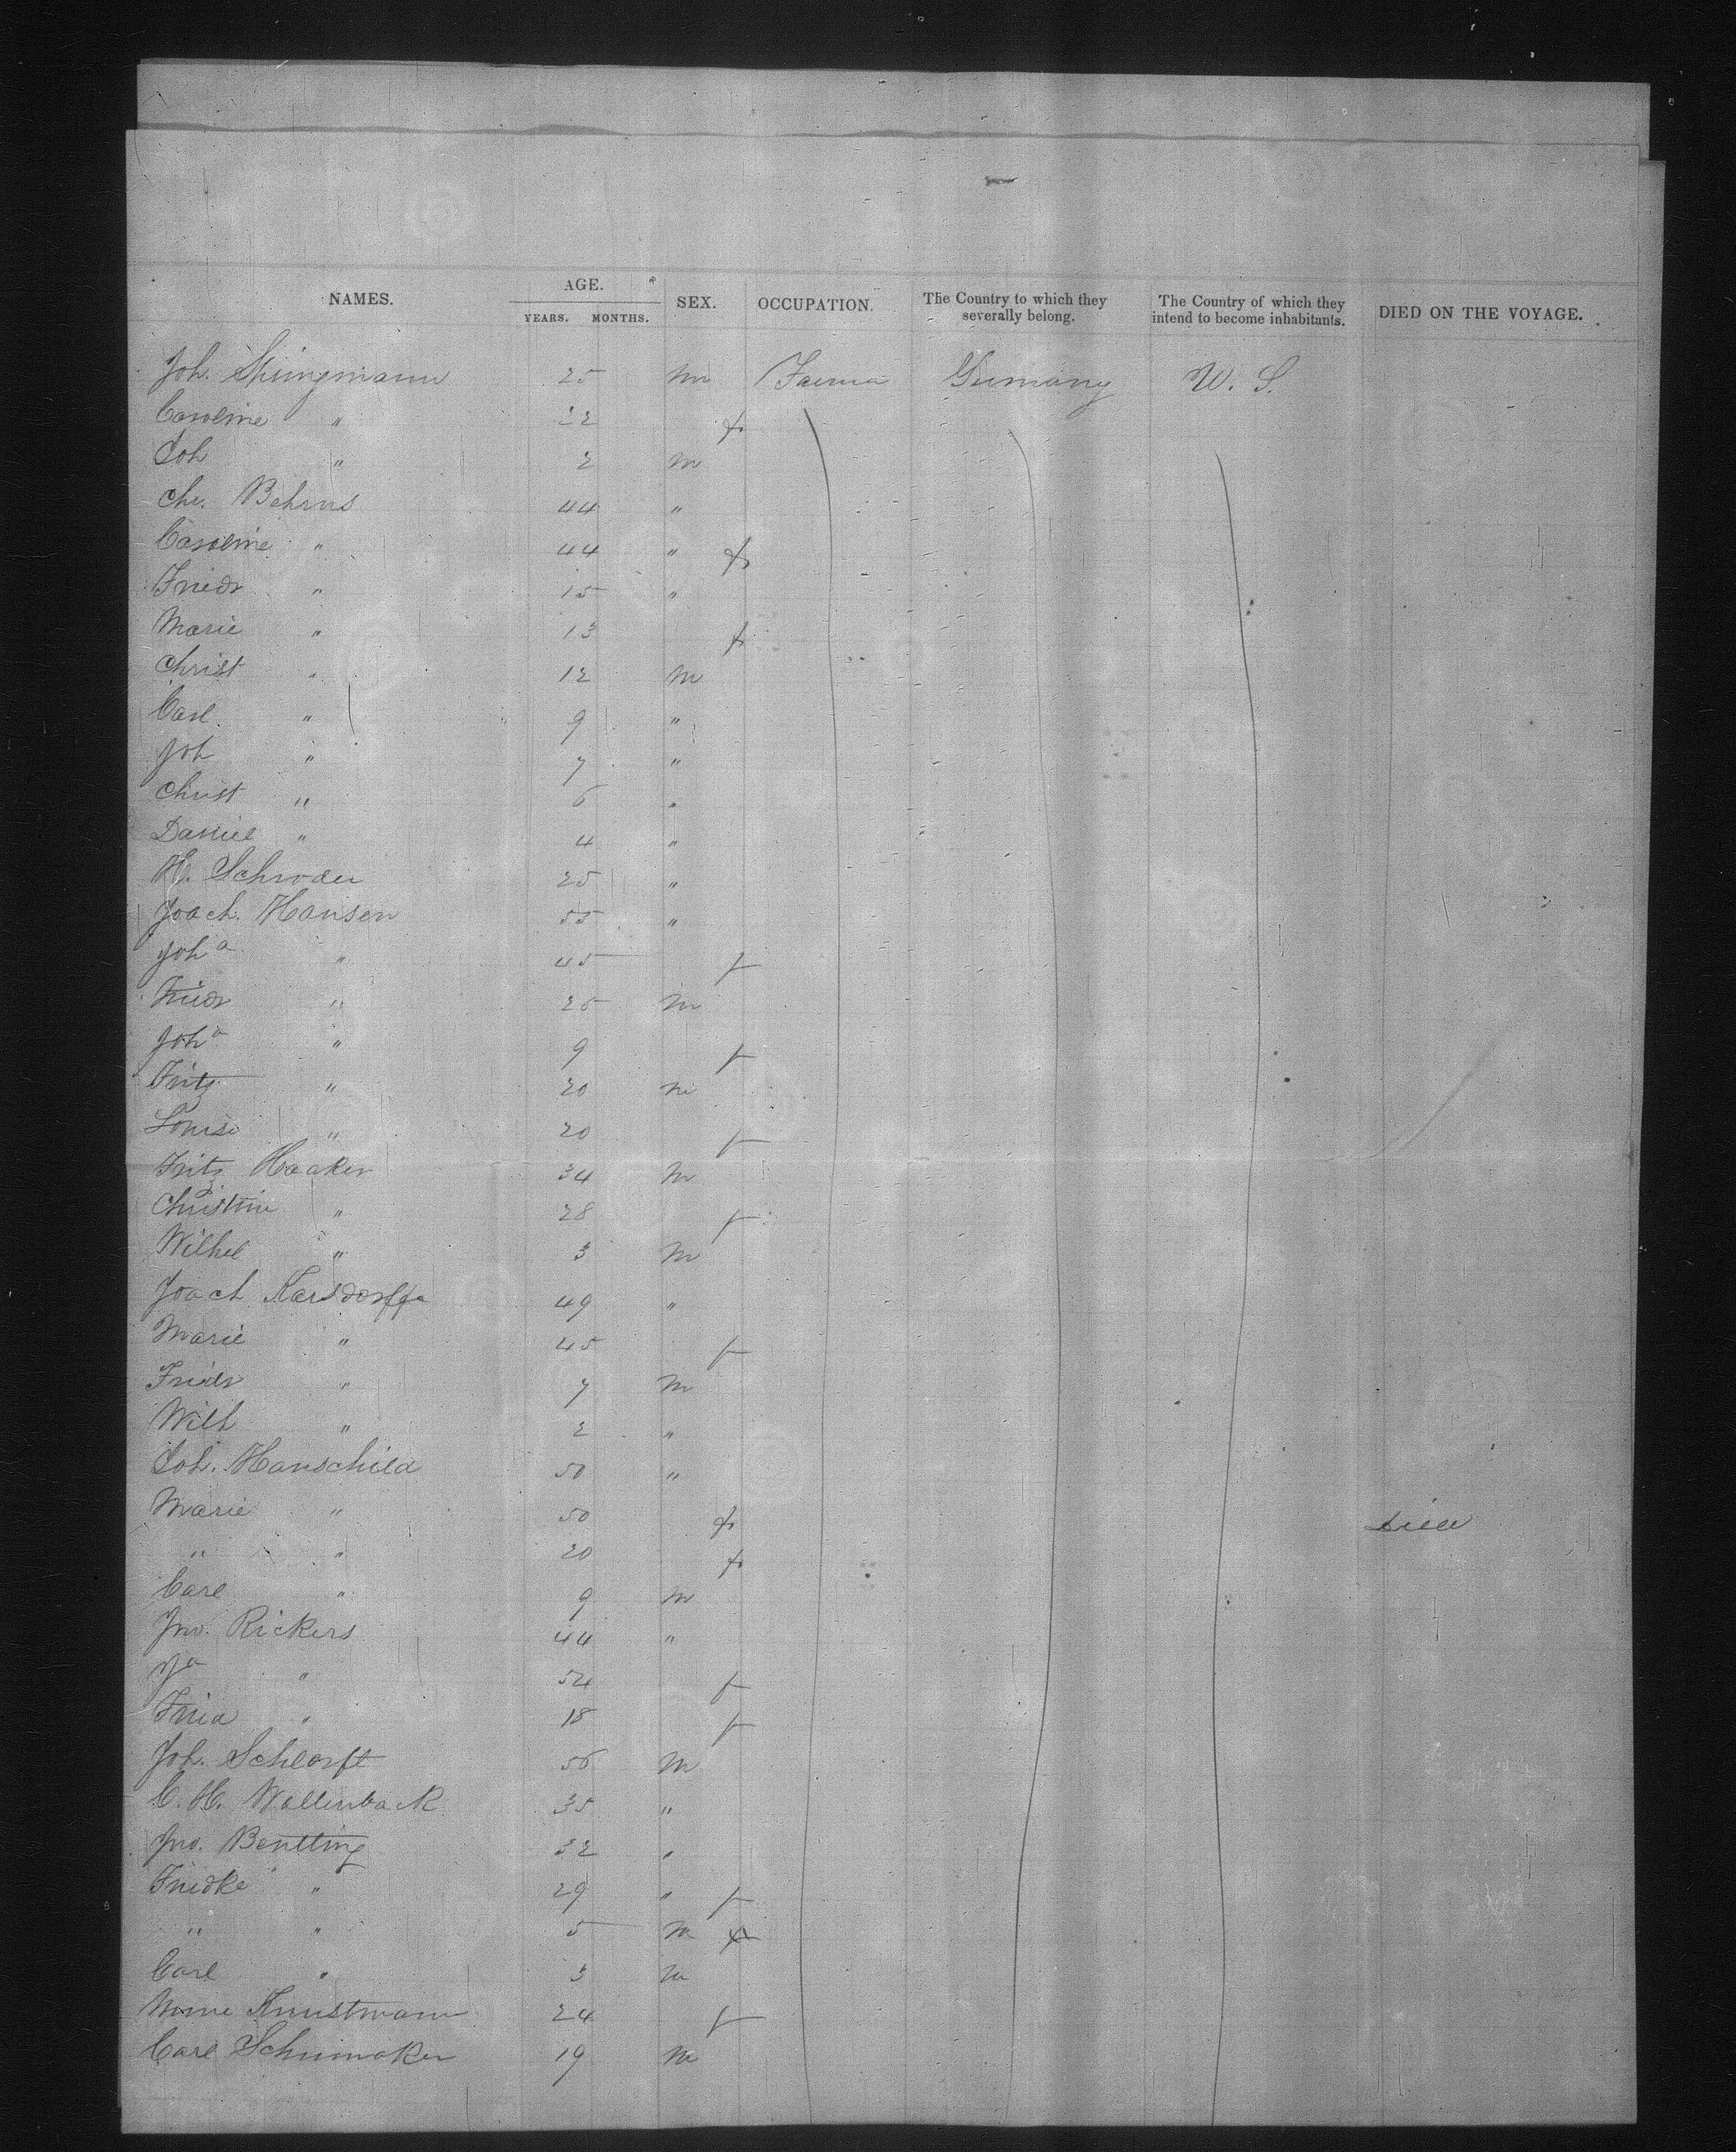 NAMES. AGE. SEX. OCCUPATION. The Country to which they severally belong. The Country of which they intend to become inhabitants. DIED ON THE VOYAGE.
YEARS. MONTHS.
Joh. Springmann 25 m Farmer Germany U. S.
Caroline " 22 f
Joh " 2 m
Chr. Behrns 44 "
Caroline " 44 " f
Friedr " 15 "
Marie " 13 f
Christ " 12 m
Carl " 9 "
Joh " 7 "
Christ " 6 "
Daniel " 4 "
H. Schroder 25 "
Joach. Hansen 55 "
Joh a " 45 f
Friedr " 25 m
Joh a " 9 f
Fritz " 20 m
Louise " 20 f
Fritz Haaker 34 m
Christine " 28 f
Wilhel " 3 m
Joach Karsdorffe 49 "
Marie " 45 f
Friedr " 7 m
Wilh " 2 "
Joh. Hanschild 50 "
Marie " 50 f Died
" " 20 f
Carl " 9 m
Jno. Rickers 44 "
Ja " 54 f
Frida " 18 f
Joh. Schlorft 56 m
C. H. Wallenback 35 "
Jno. Bentling 32 "
Friedke " 29 " f
" " 5 m f
Carl " 3 m
Mine Kunstmann 24 f
Carl Schumaker 19 m